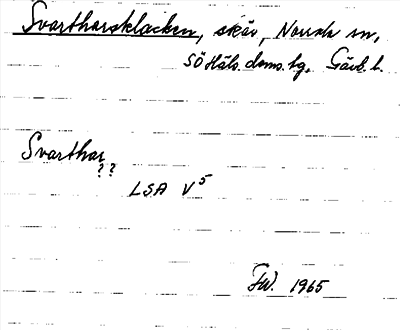 Svartharsklacken, skär, Norrala sn,
SÖ Häls. doms. hg, Gävl. l.
Svarthar
? ?
LSA V5
FW. 1965